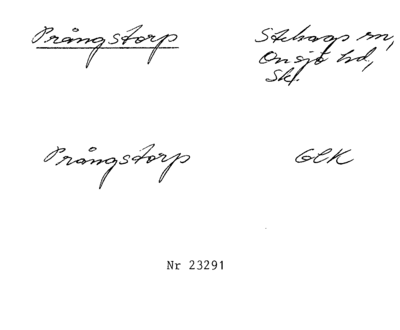 Prångstorp
Stehags sn,
Onsjö hd,
Sk.
Prångstorp
GEK
Nr 23291